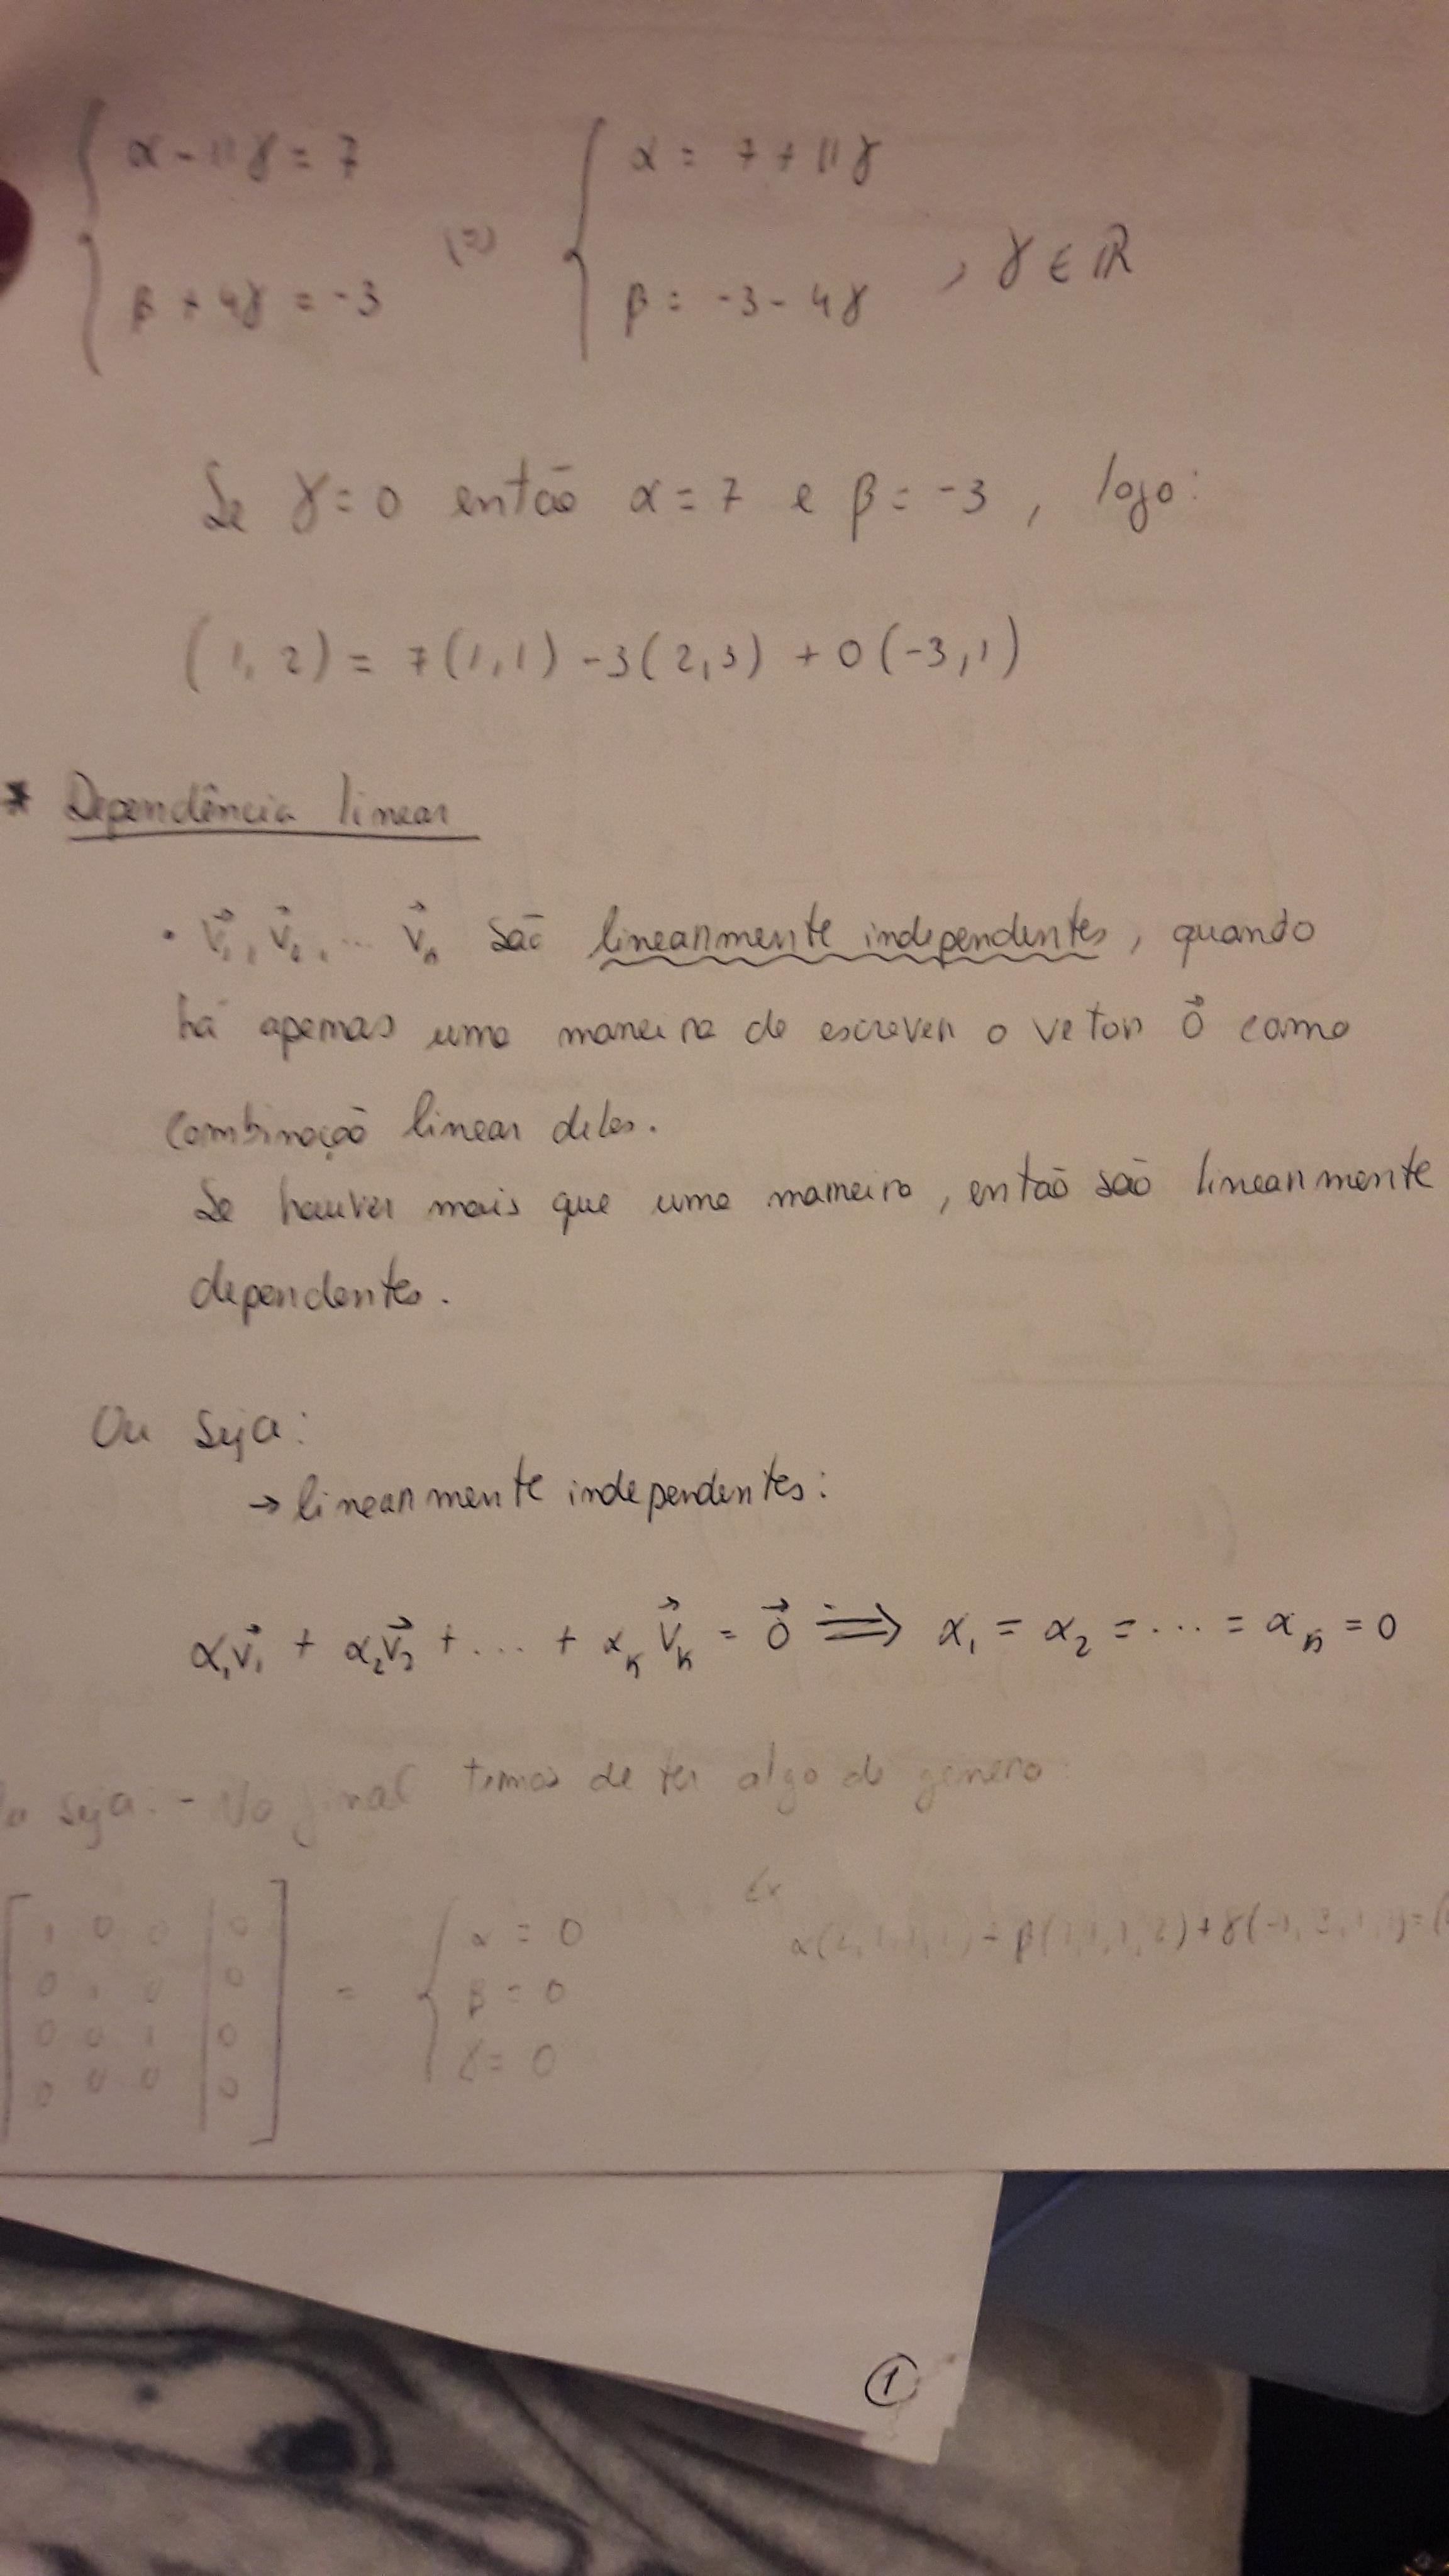 α - 11γ = 7 (=) α = 7 + 11γ
β + 4γ = -3 β = -3 - 4γ , γ ∈ ℝ
Se γ = 0 então α = 7 e β = -3 , logo:
(1, 2) = 7(1,1) - 3(2,3) + 0(-3,1)
* Dependência linear
• v⃗₁, v⃗₂, ... v⃗ₙ são linearmente independentes, quando
há apenas uma maneira de escrever o vetor 0⃗ como
combinação linear deles.
Se houver mais que uma maneira, então são linearmente
dependentes.
Ou seja:
→ linearmente independentes:
α₁v⃗₁ + α₂v⃗₂ + ... + αₖv⃗ₖ = 0⃗ ⟹ α₁ = α₂ = ... = αₖ = 0
seja: - No final temos de ter algo do género:
1 0 0 | 0 α = 0 Ex
0 1 0 | 0 = β = 0
0 0 1 | 0 γ = 0
0 0 0 | 0
1